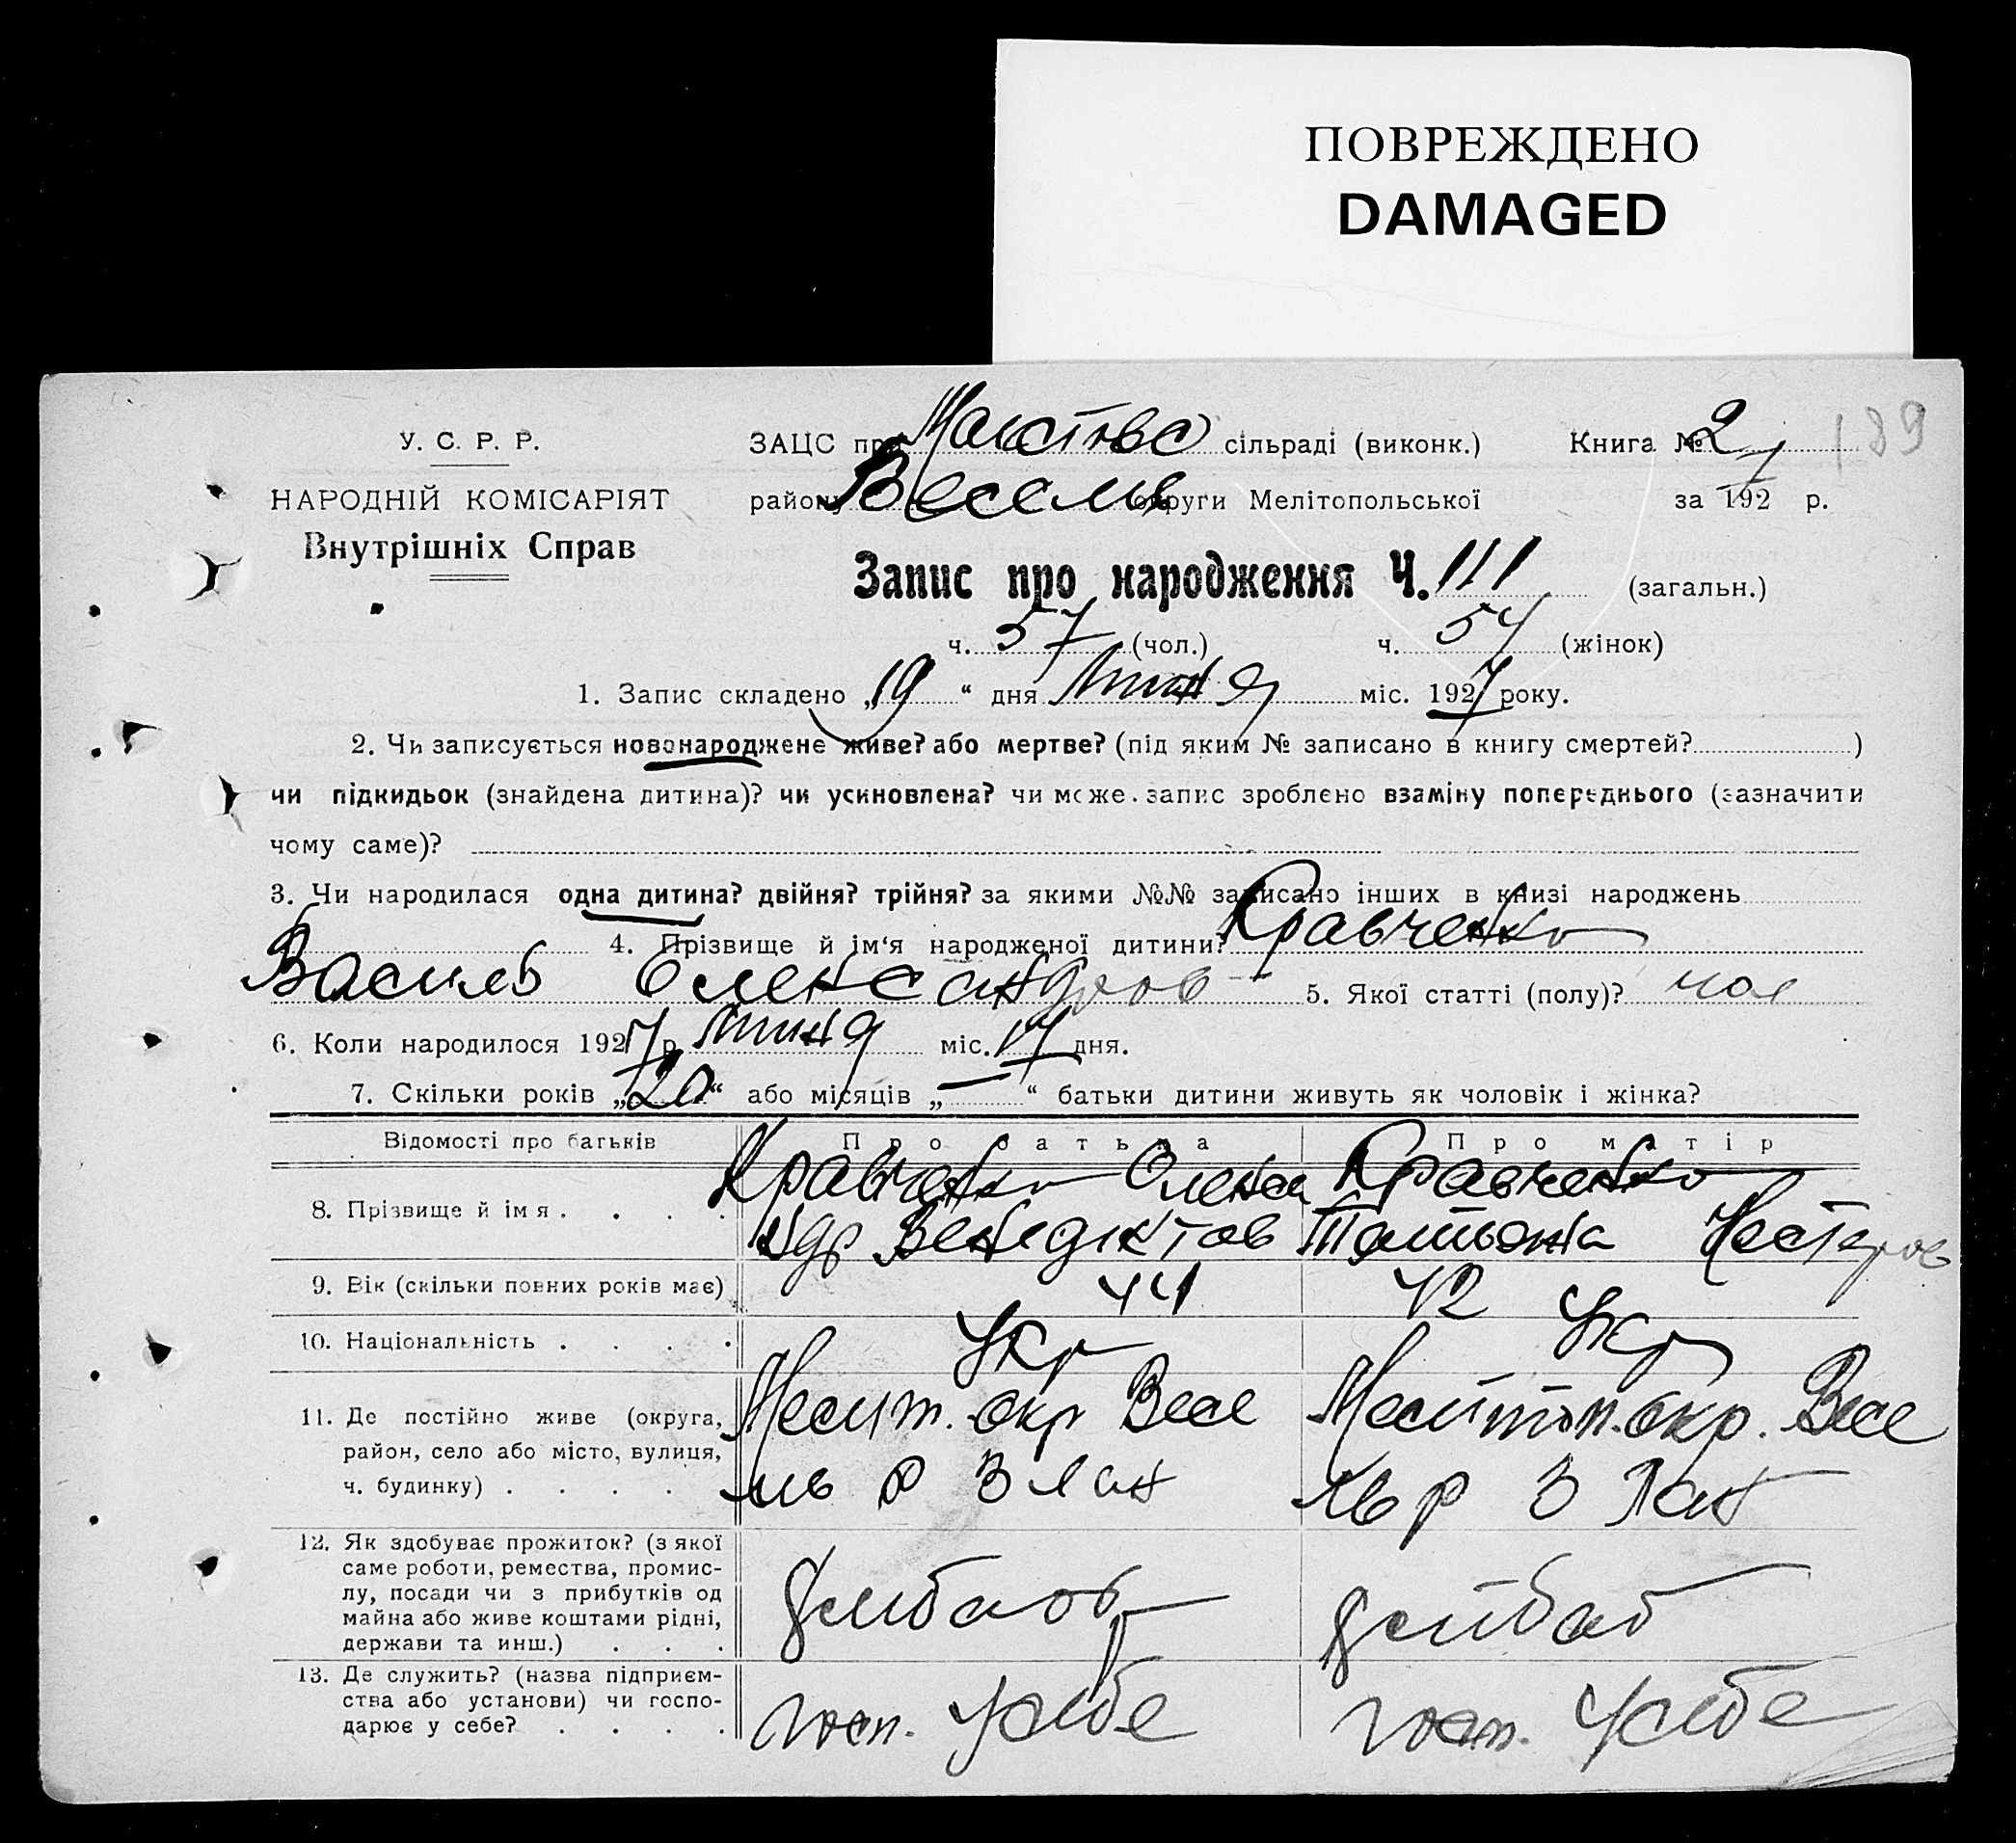 ПОВРЕЖДЕНО
DAMAGED
У. С. Р. Р.
НАРОДНІЙ КОМІСАРІЯТ
Внутрішніх Справ
ЗАЦС при сільраді (виконк.) Книга № 2 189
району Весель округи Мелітопольської за 1927 р.
Запис про народження Ч. 111 (загальн.)
ч. 57 (чол.) ч. 54 (жінок)
1. Запис складено „19“ дня Липня міс. 1927 року.
2. Чи записується новонароджене живе? або мертве? (під яким № записано в книгу смертей? )
чи підкидьок (знайдена дитина)? чи усиновлена? чи може запис зроблено взаміну попереднього (зазначити
чому саме)?
3. Чи народилася одна дитина? двійня? трійня? за якими №№ записано інших в книзі народжень
4. Прізвище й ім‘я народженої дитини? Кравченко
Василь Олександров 5. Якої статті (полу)? чол
6. Коли народилося 1927 р. Липня міс. 17 дня.
7. Скільки років „20“ або місяців „—“ батьки дитини живуть як чоловік і жінка?
Відомості про батьків Про батька Про матір
8. Прізвище й імя . . . . Кравченко Олекса Кравченко
ндр Венедіктов Татьяна Нестеров
9. Вік (скільки повних років має) 44 42
10. Національність . . . . Укр Укр
11. Де постійно живе (округа, Меліт. окр Весе Мелітоп. окр. Весе
район, село або місто, вулиця,
ч. будинку) . . . . ль р З Лан ль р З Лан
12. Як здобуває прожиток? (з якої
саме роботи, ремества, промис-
лу, посади чи з прибутків од
майна або живе коштами рідні,
держави та инш.) . . . хлібороб хлібороб
13. Де служить? (назва підприєм-
ства або установи) чи госпо-
дарює у себе? . . . . госп. у себе госп. у себе